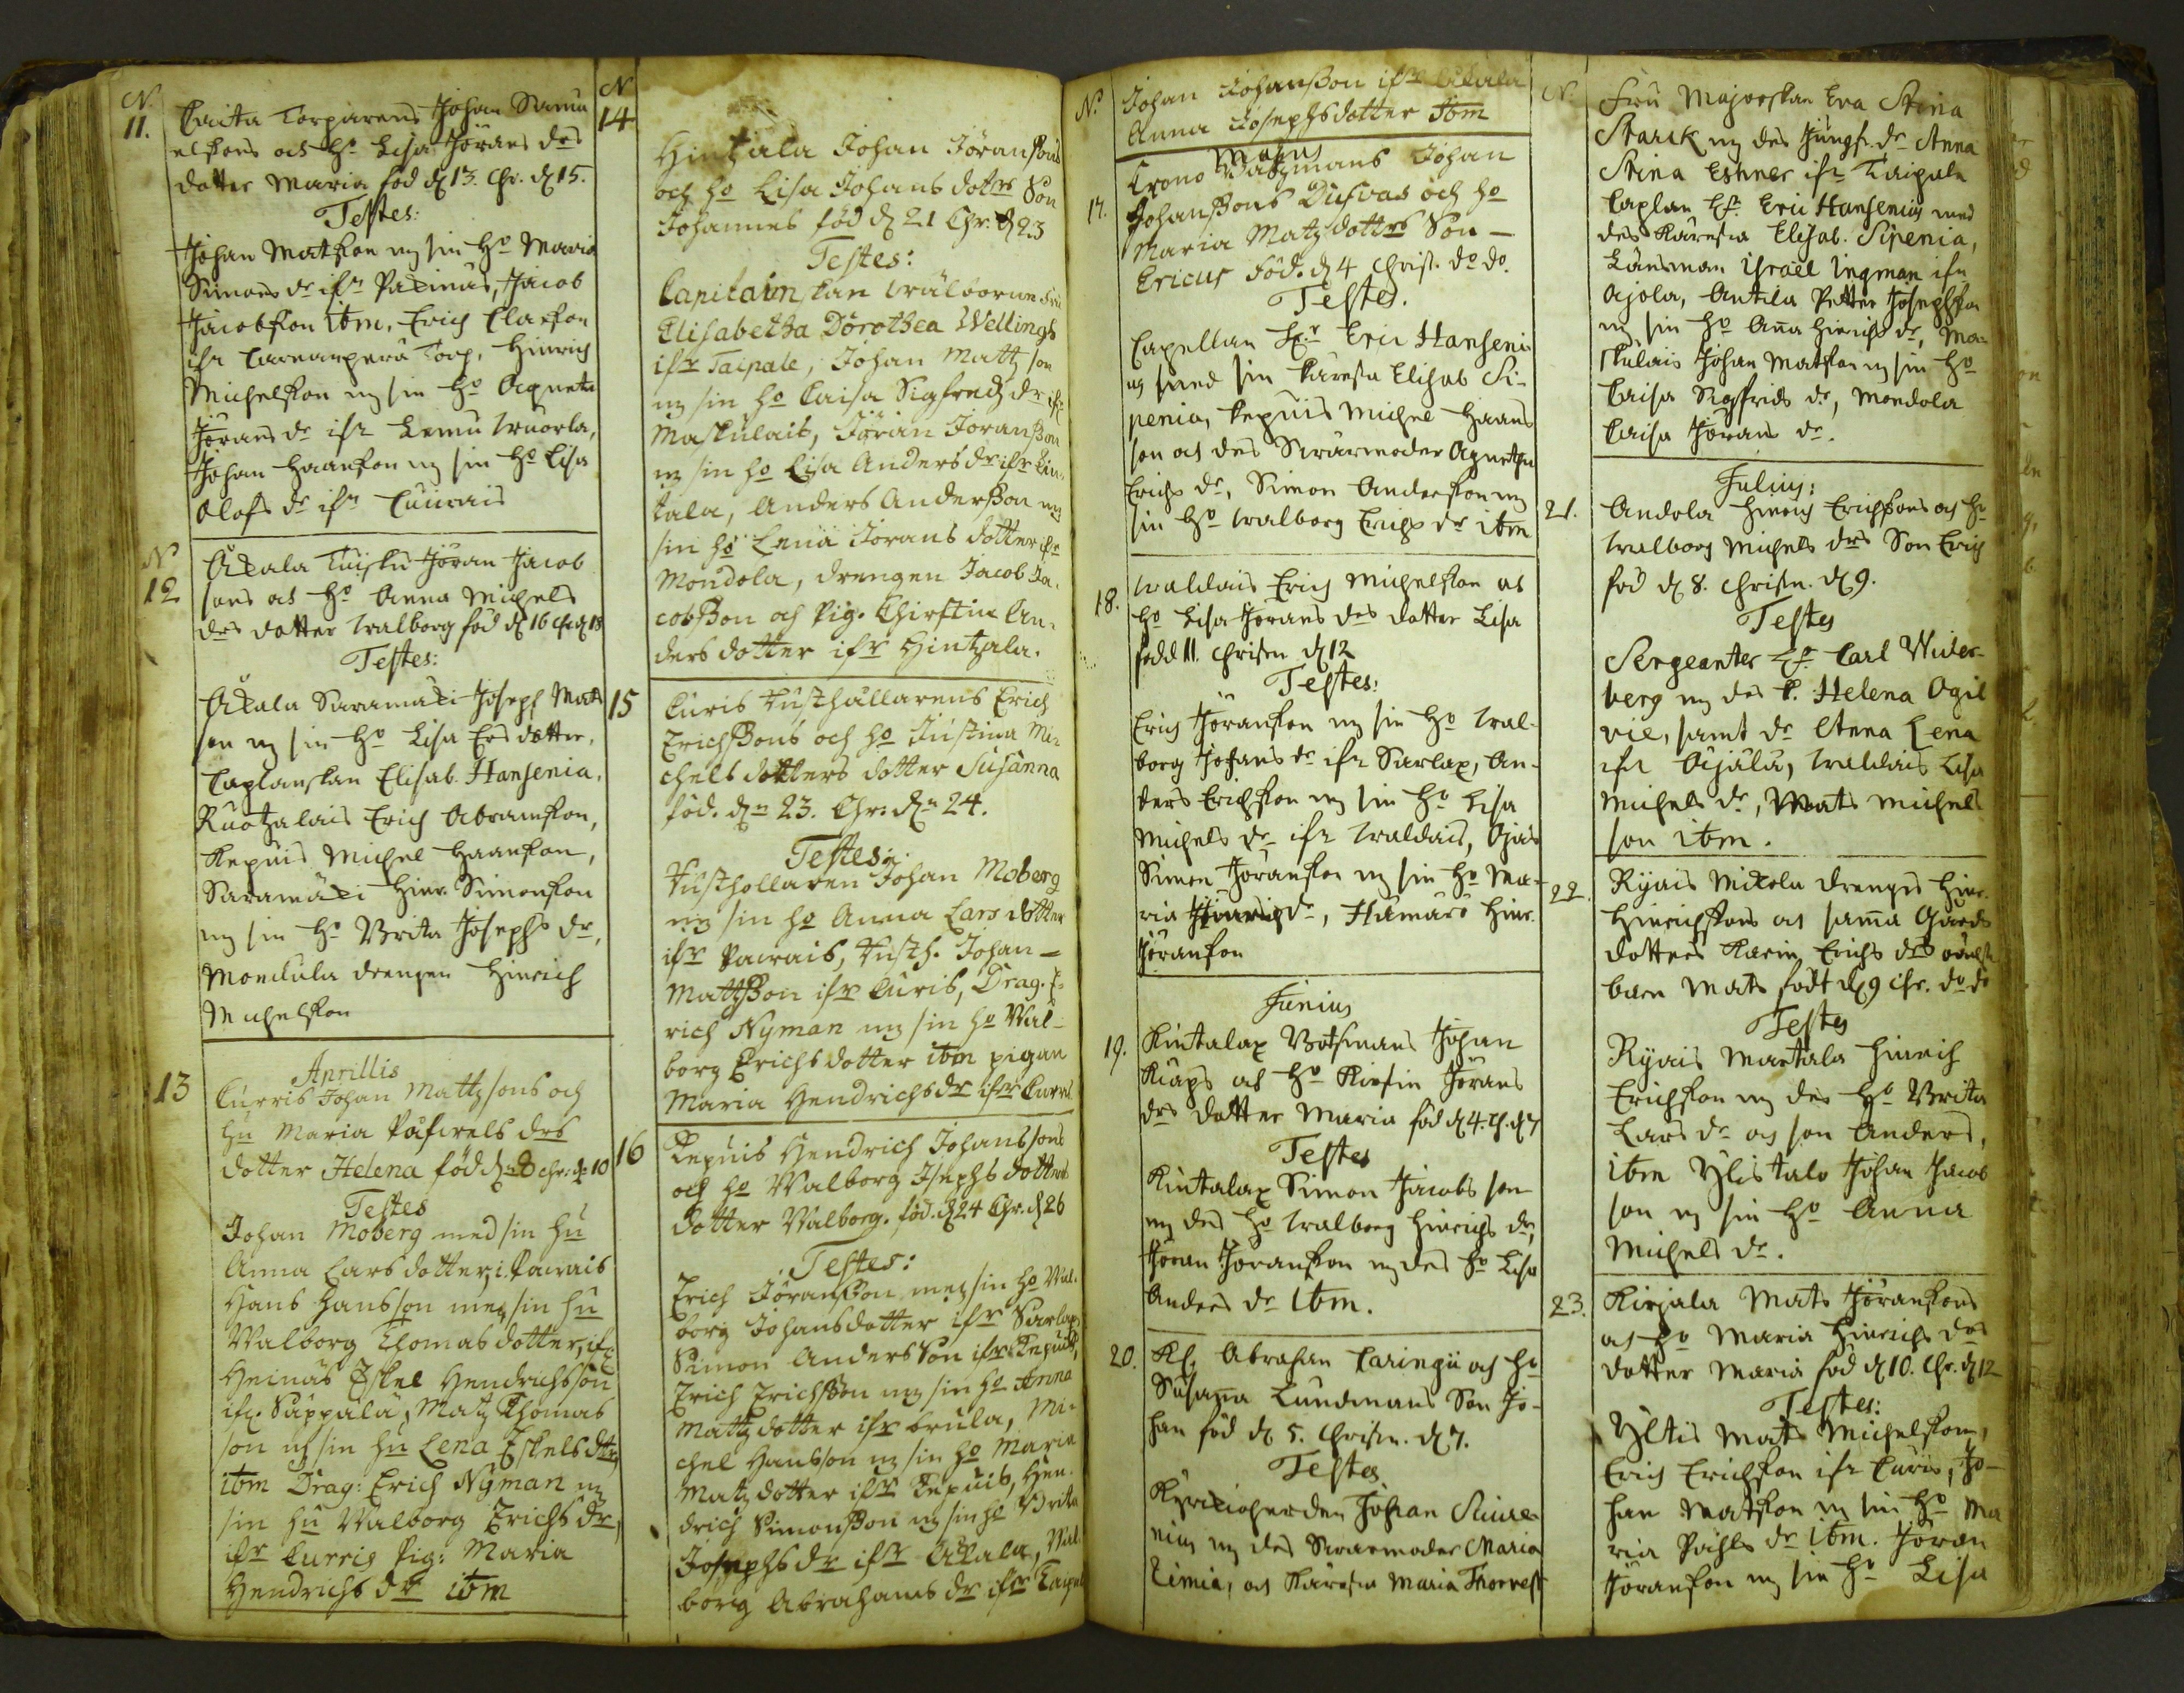 N.
11. Caita Torparens Johan Samu
elssons och Ho Lisa Jörans drs
dotter Maria föd d 13. Chr. d 15.
Testes:
Johan Matsson mz sin Ho Maria
Simons dr ifr Pakinais, Jacob
Jacobsson itm, Erich Classon
ifr Torp, Hinrich
Michelsson mz sin Ho Agneta
Jörans dr ifr Lemu
Johan Haansson mz sin Ho Lisa
Olofs dr ifr
N
12 Åkala Jöran Jacob
sons och Ho Anna Michels
drs dotter Walborg föd d 16 chr d 18
Testes:
Åkala Saramäki Joseph Mats
son mz sin Ho Lisa Ers dotter,
Caplanskan Elisab. Hansenia,
Ruotzalais Erich Abramsson,
Kepuis Michel Haansson,
Saramäki Hinr. Simonsson
mz sin Ho Brita Josephs dr,
Mondula drengen Hinrich
Michelsson
Aprillis
13 Curris Johan Mattzsons och
Hu Maria drs
dotter Helena föd dn 8 chr: dn 10
Testes
Johan Moberg med sin Hu
Anna Larsdotter, i. Pairais
Hans Hansson mez sin Hu
Walborg Thomasdotter, ifr
Heinäs Eskel Hendrichsson
ifr. Säppälä, Matz Thomas
son mz sin Hu Lena Eskelsdttr,
itm Drag: Erich Nyman mz
sin Hu Walborg Erichs dr,
ifr Curris Pig: Maria
Hendrichs dr itm
N
14
Hintzala Johan Jöranßons
och Ho Lisa Johansdotrs Son
Johannes föd d 21 Chr. d 23
Testes:
Capitainskan Frü
Elisabetha Dorothea Wellings
ifr Taipale, Johan Mattzson
mz sin Ho Caisa Sigfredz dr ifr
Maskulais, Jöran Joranßon
mz sin Ho Lisa Anders dr ifr Kin
tala, Anders Anderßon mz
sin Ho Lena Jörans dotter ifr
Mondola, drengen Jacob Ja
cobßon och Pig. Chirstin An
dersdotter ifr Hintzala.
15 Curis Rusthallarens Erich
Erichßons och Ho Justina Mi
chels dotters dotter Susanna
föd. dn 23. Chr: dn 24.
Testes:
Rusthollaren Johan Moberg
mz sin Ho Anna Larsdotter
ifr Pairais, Rusth. Johan
Mattzßon ifr Curis, Drag. E
rich Nyman mz sin Ho Wal
borg Erichsdotter itm pigan
Maria Hendrichs dr ifr Curris
16 Kepuis Hendrich Johanssons
och Ho Walborg Josephs dotters
dotter Walborg. föd. d 24 Chr. d 26
Testes:
Erich Jöranßon mez sin Ho Wal
borg Johansdotter ifr Sarlax,
Simon Andersson ifr Kepuis,
Erich Erichßon mz sin Ho Anna
Mattzdotter ifr Mi
chel Hansson mz sin Ho Maria
Matzdotter ifr Kepuis, Hen
drich Simonßon mz sin Ho Brita
Josephs dr ifr Åkala, Wal
borg Abrahams dr ifr Taipal
No Johan Johanßon ifr Åkala
Anna Josephsdotter itm
Majus
17. Crono Båtzmans Johan
Johanßons Dufvas och Ho
Maria Matzdotters Son
Ericus föd. d 4 Christ. do do.
Testes.
Capellan Hr Eric Hanseni
us med sin Käresta Elisab Si
penia, Kepuis Michel Haans
son och des Swärmoder Agnetha
Erichs dr, Simon Andersson mz
sin Ho Walborg Erichs dr itm
18. Waldais Erich Michelsson och
Ho Lisa Jörans drs dotter Lisa
född 11. Christn d 12
Testes:
Erich Jöransson mz sin Ho Wal
borg Johans dr ifr Sarlax, An
ders Erichsson mz sin Ho Lisa
Michels dr ifr Waldais, Ojais
Simon Jöransson mz sin Ho Ma
ria Hinrichs dr, Hämäro Hinr.
Jöransson
Junius
19. Kintalax Båtsmans Johan
Kiäps och Ho Kirstin Jörans
drs dotter Maria föd d 4. ch. d 7
Testes
Kintalax Simon Jacobsson
mz des Ho Walborg Hinrichs dr,
Jöran Jöransson mz des Ho Lisa
Anders dr itm.
20. Kl. Abraham Caringii och Ho
Susanna Lundmans Son Jo
han föd d 5. Christn. d 7.
Testes
Kyrckioherden Johan
mz des Swärmoder Maria
Limia, och Käresta Maria
N. Fru Majorskan Eva Stina
Starck mz des Jungfr. dr Anna
Stina Eshner ifr Taipale
Caplan Hr. Eric Hansenius med
des Käresta Elisab. Sipenia,
Länsman Israël Ingman ifr
Ajola, Antila Petter Josephsson
mz sin Ho Anna Hinrichs dr, Ma
skulais Johan Matsson mz sin Ho
Caisa Sigfrids dr, Mondola
Caisa Jörans dr.
Julius:
21. Andola Hinrich Erichssons och Ho
Walborg Michels drs Son Erich
föd d 8. Christn. d 9.
Testes
Sergeanten Hr Carl Wider
berg mz des k. Helena Ogil
vie, samt dr Anna Lena
ifr Ajala, Waldais Lisa
Michels dr, Mats Michels
son itm.
22. Ryais Mikola drengs Hinr.
Hinrichssons och samma Gårds
dotters Karin Erichs drs oäckta
barn Mats födt d 9 chr. do do
Testes
Ryais Martala Hinrich
Erichsson mz des Ho Brita
Lars dr och son Anders,
itm Ylistalo Johan Jacob
son mz sin Ho Anna
Michels dr.
23. Kirjala Mats Jöranssons
och Ho Maria Hinrichs drs
dotter Maria föd d 10. Chr. d 12
Testes:
Yltis Mats Michelsson,
Erich Erichsson ifr Curis, Jo
han Matsson mz sin Ho Ma
ria Påhls dr itm. Jöran
Jöransson mz sin Ho Lisa